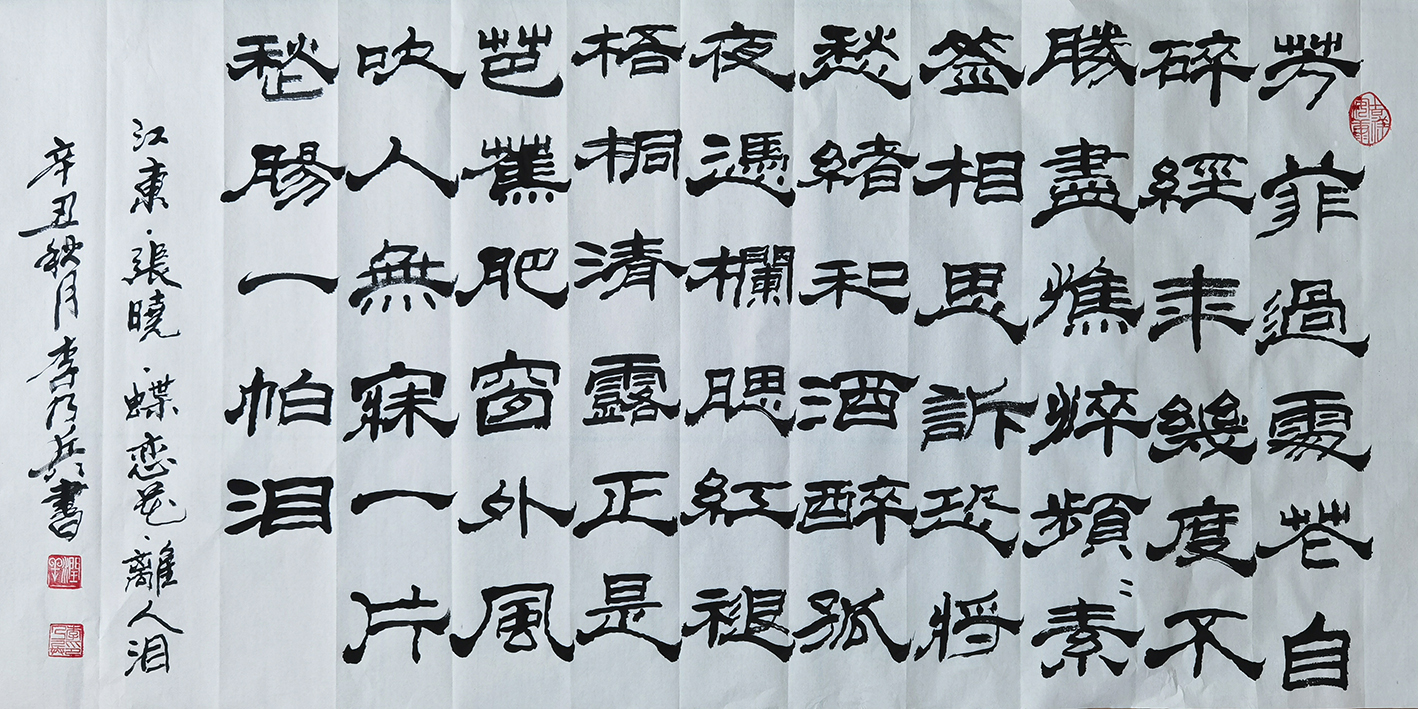 芳菲過處花自
碎經年幾度不
勝盡憔悴頻〻素
笺相思訴恐將
愁緒和酒醉孤
夜憑欄腮紅褪
梧桐清露正是
芭蕉肥窗外風
吹人無寐一片
愁腸一帕泪
江東·張曉·蝶恋花·離人泪
辛丑秋月李乃兵書